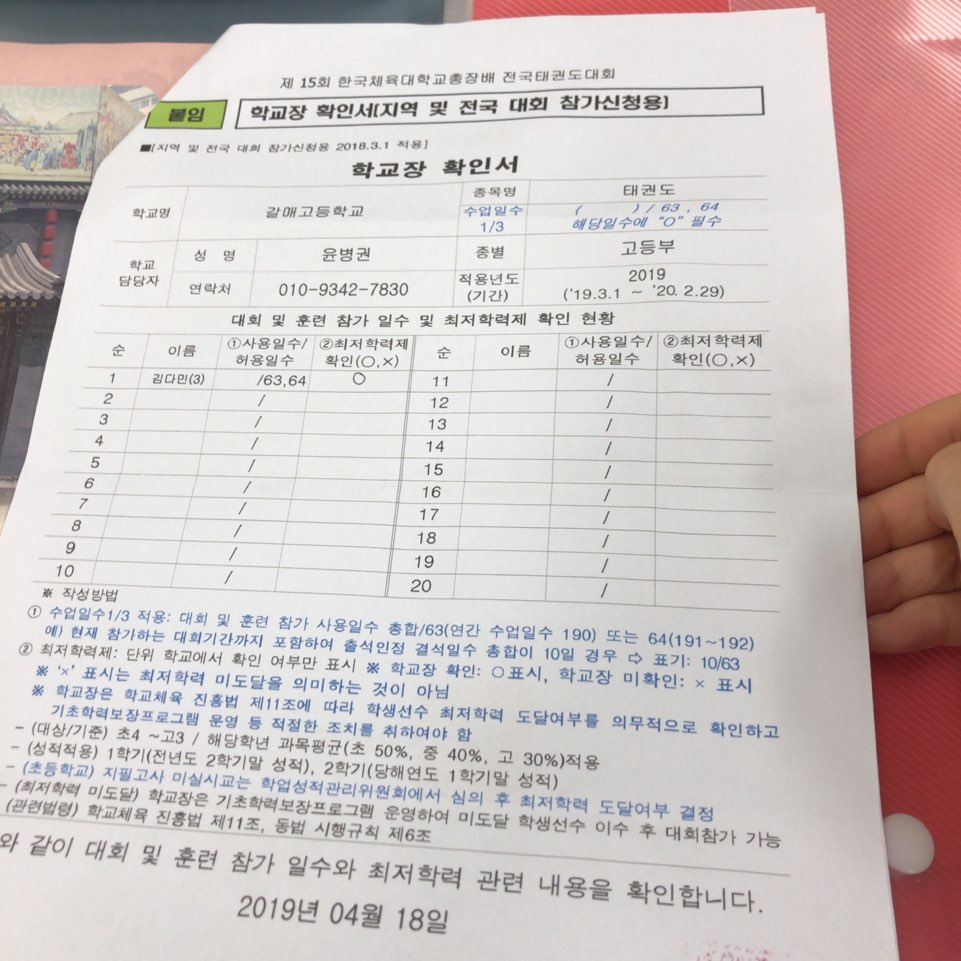 제 15회 한국체육대학교총장배 전국태권도대회
붙임 학교장 확인서(지역 및 전국 대회 참가신청용)
■[지역 및 전국 대회 참가신청용 2018.3.1 적용]
학교장 확인서
학교명 갈매고등학교 종목명 태권도
수업일수 1/3 ( ) / 63 , 64
해당일수에 "O" 필수
학교 담당자 성 명 윤병권 종별 고등부
연락처 010-9342-7830 적용년도 (기간) 2019
('19.3.1 ~ '20. 2.29)
대회 및 훈련 참가 일수 및 최저학력제 확인 현황
순 이름 ①사용일수/허용일수 ②최저학력제 확인(○,×) 순 이름 ①사용일수/허용일수 ②최저학력제 확인(○,×)
1 김다민(3) /63,64 ○ 11 /
2 / 12 /
3 / 13 /
4 / 14 /
5 / 15 /
6 / 16 /
7 / 17 /
8 / 18 /
9 / 19 /
10 / 20 /
※ 작성방법
① 수업일수1/3 적용: 대회 및 훈련 참가 사용일수 총합/63(연간 수업일수 190) 또는 64(191~192)
예) 현재 참가하는 대회기간까지 포함하여 출석인정 결석일수 총합이 10일 경우 ⇨ 표기: 10/63
② 최저학력제: 단위 학교에서 확인 여부만 표시 ※ 학교장 확인: ○표시, 학교장 미확인: × 표시
※ '×' 표시는 최저학력 미도달을 의미하는 것이 아님
※ 학교장은 학교체육 진흥법 제11조에 따라 학생선수 최저학력 도달여부를 의무적으로 확인하고
기초학력보장프로그램 운영 등 적절한 조치를 취하여야 함
- (대상/기준) 초4 ~고3 / 해당학년 과목평균(초 50%, 중 40%, 고 30%)적용
- (성적적용) 1학기(전년도 2학기말 성적), 2학기(당해연도 1학기말 성적)
- (초등학교) 지필고사 미실시교는 학업성적관리위원회에서 심의 후 최저학력 도달여부 결정
- (최저학력 미도달) 학교장은 기초학력보장프로그램 운영하여 미도달 학생선수 이수 후 대회참가 가능
(관련법령) 학교체육 진흥법 제11조, 동법 시행규칙 제6조
와 같이 대회 및 훈련 참가 일수와 최저학력 관련 내용을 확인합니다.
2019년 04월 18일